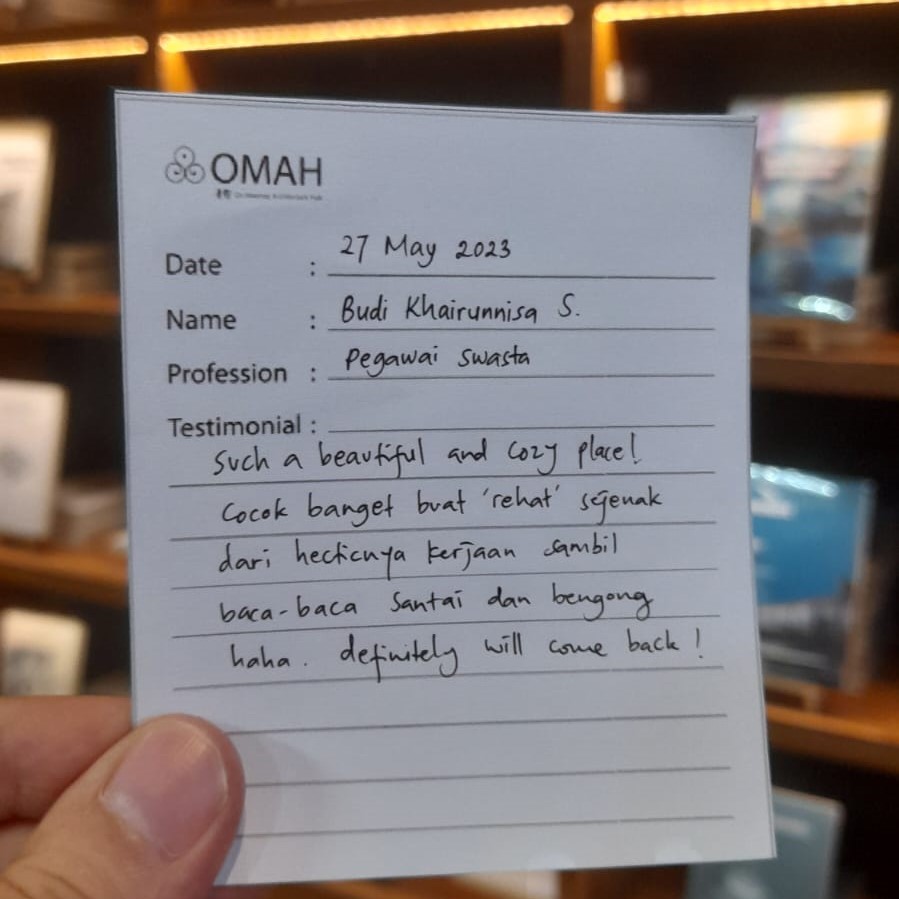 OMAH
Date : 27 May 2023
Name : Budi Khairunnisa S.
Profession : Pegawai swasta
Testimonial :
Such a beautiful and cozy place!
Cocok banget buat 'rehat' sejenak
dari hecticnya kerjaan sambil
baca-baca santai dan bengong
haha. definitely will come back!